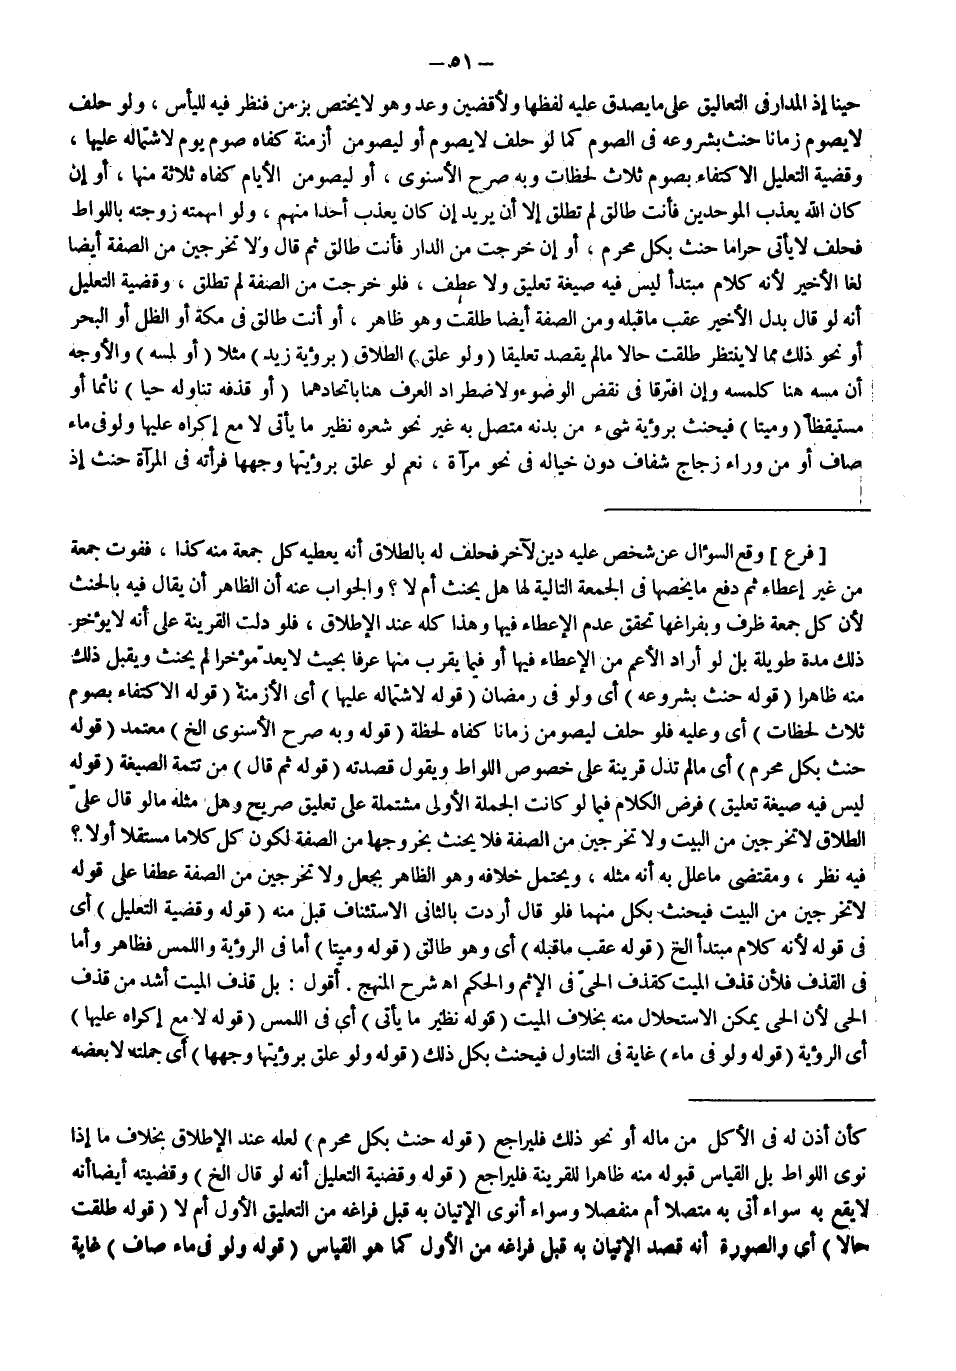 — ٥١ —
حينا إذ المدار فى التعاليق على ما يصدق عليه لفظها ولأقضين وعد وهو لا يختص بزمن فنظر فيه لليأس ، ولو حلف
لا يصوم زمانا حنث بشروعه فى الصوم كما لو حلف لا يصوم أو ليصومن أزمنة كفاه صوم يوم لاشتماله عليها ،
وقضية التعليل الاكتفاء بصوم ثلاث لحظات وبه صرح الأسنوى ، أو ليصومن الأيام كفاه ثلاثة منها ، أو إن
كان الله يعذب الموحدين فأنت طالق لم تطلق إلا أن يريد إن كان يعذب أحدا منهم ، ولو اتهمته زوجته باللواط
فحلف لا يأتى حراما حنث بكل محرم ، أو إن خرجت من الدار فأنت طالق ثم قال ولا تخرجين من الصفة أيضا
لغا الأخير لأنه كلام مبتدأ ليس فيه صيغة تعليق ولا عطف ، فلو خرجت من الصفة لم تطلق ، وقضية التعليل
أنه لو قال بدل الأخير عقب ما قبله ومن الصفة أيضا طلقت وهو ظاهر ، أو أنت طالق فى مكة أو الظل أو البحر
أو نحو ذلك مما لا ينتظر طلقت حالا ما لم يقصد تعليقا ( ولو علق ) الطلاق ( برؤية زيد ) مثلا ( أو لمسه ) والأوجه
أن مسه هنا كلمسه وإن افترقا فى نقض الوضوء ولاضطراد العرف هنا باتحادهما ( أو قذفه تناوله حيا ) نائما أو
مستيقظا ( وميتا ) فيحنث برؤية شىء من بدنه متصل به غير نحو شعره نظير ما يأتى لا مع إكراه عليها ولو فى ماء
صاف أو من وراء زجاج شفاف دون خياله فى نحو مرآة ، نعم لو علق برؤيتها وجهها فرأته فى المرآة حنث إذ
[ فرع ] وقع السؤال عن شخص عليه دين لآخر فحلف له بالطلاق أنه يعطيه كل جمعة منه كذا ، ففوت جمعة
من غير إعطاء ثم دفع ما يخصها فى الجمعة التالية لها هل يحنث أم لا ؟ والجواب عنه أن الظاهر أن يقال فيه بالحنث
لأن كل جمعة ظرف وبفراغها تحقق عدم الإعطاء فيها وهذا كله عند الإطلاق ، فلو دلت القرينة على أنه لا يؤخر
ذلك مدة طويلة بل لو أراد الأعم من الإعطاء فيها أو فيما يقرب منها عرفا بحيث لا يعد مؤخرا لم يحنث ويقبل ذلك
منه ظاهرا ( قوله حنث بشروعه ) أى ولو فى رمضان ( قوله لاشتماله عليها ) أى الأزمنة ( قوله الاكتفاء بصوم
ثلاث لحظات ) أى وعليه فلو حلف ليصومن زمانا كفاه لحظة ( قوله وبه صرح الأسنوى الخ ) معتمد ( قوله
حنث بكل محرم ) أى ما لم تدل قرينة على خصوص اللواط ويقول قصدته ( قوله ثم قال ) من تتمة الصيغة ( قوله
ليس فيه صيغة تعليق ) فرض الكلام فيما لو كانت الجملة الأولى مشتملة على تعليق صريح وهل مثله ما لو قال علىّ
الطلاق لا تخرجين من البيت ولا تخرجين من الصفة فلا يحنث بخروجها من الصفة لكون كل كلاما مستقلا أو لا ؟
فيه نظر ، ومقتضى ما علل به أنه مثله ، ويحتمل خلافه وهو الظاهر بجعل ولا تخرجين من الصفة عطفا على قوله
لا تخرجين من البيت فيحنث بكل منهما فلو قال أردت بالثانى الاستئناف قبل منه ( قوله وقضية التعليل ) أى
فى قوله لأنه كلام مبتدأ الخ ( قوله عقب ما قبله ) أى وهو طالق ( قوله وميتا ) أما فى الرؤية واللمس فظاهر وأما
فى القذف فلأن قذف الميت كقذف الحىّ فى الإثم والحكم اه شرح المنهج . أقول : بل قذف الميت أشد من قذف
الحى لأن الحى يمكن الاستحلال منه بخلاف الميت ( قوله نظير ما يأتى ) أى فى اللمس ( قوله لا مع إكراه عليها )
أى الرؤية ( قوله ولو فى ماء ) غاية فى التناول فيحنث بكل ذلك ( قوله ولو علق برؤيتها وجهها ) أى جملته لا بعضه
كأن أذن له فى الأكل من ماله أو نحو ذلك فليراجع ( قوله حنث بكل محرم ) لعله عند الإطلاق بخلاف ما إذا
نوى اللواط بل القياس قبوله منه ظاهرا للقرينة فليراجع ( قوله وقضية التعليل أنه لو قال الخ ) وقضيته أيضا أنه
لا يقع به سواء أتى به متصلا أم منفصلا وسواء أنوى الإتيان به قبل فراغه من التعليق الأول أم لا ( قوله طلقت
حالا ) أى والصورة أنه قصد الإتيان به قبل فراغه من الأول كما هو القياس ( قوله ولو فى ماء صاف ) غاية